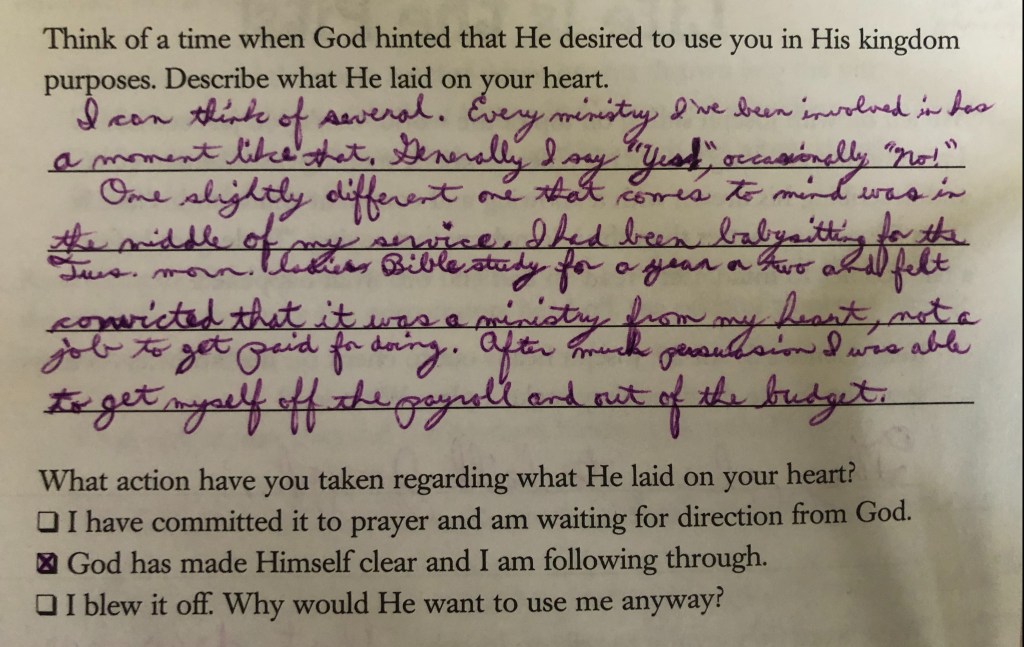 Think of a time when God hinted that He desired to use you in His kingdom
purposes. Describe what He laid on your heart.
I can think of several. Every ministry I've been involved in has
a moment like that. Generally I say "Yes!", occasionally "no!"
One slightly different one that comes to mind was in
the middle of my service. I had been babysitting for the
Tues. morn. ladies Bible study for a year or two and felt
convicted that it was a ministry from my heart, not a
job to get paid for doing. After much persuasion I was able
to get myself off the payroll and out of the budget.
What action have you taken regarding what He laid on your heart?
☐ I have committed it to prayer and am waiting for direction from God.
☒ God has made Himself clear and I am following through.
☐ I blew it off. Why would He want to use me anyway?